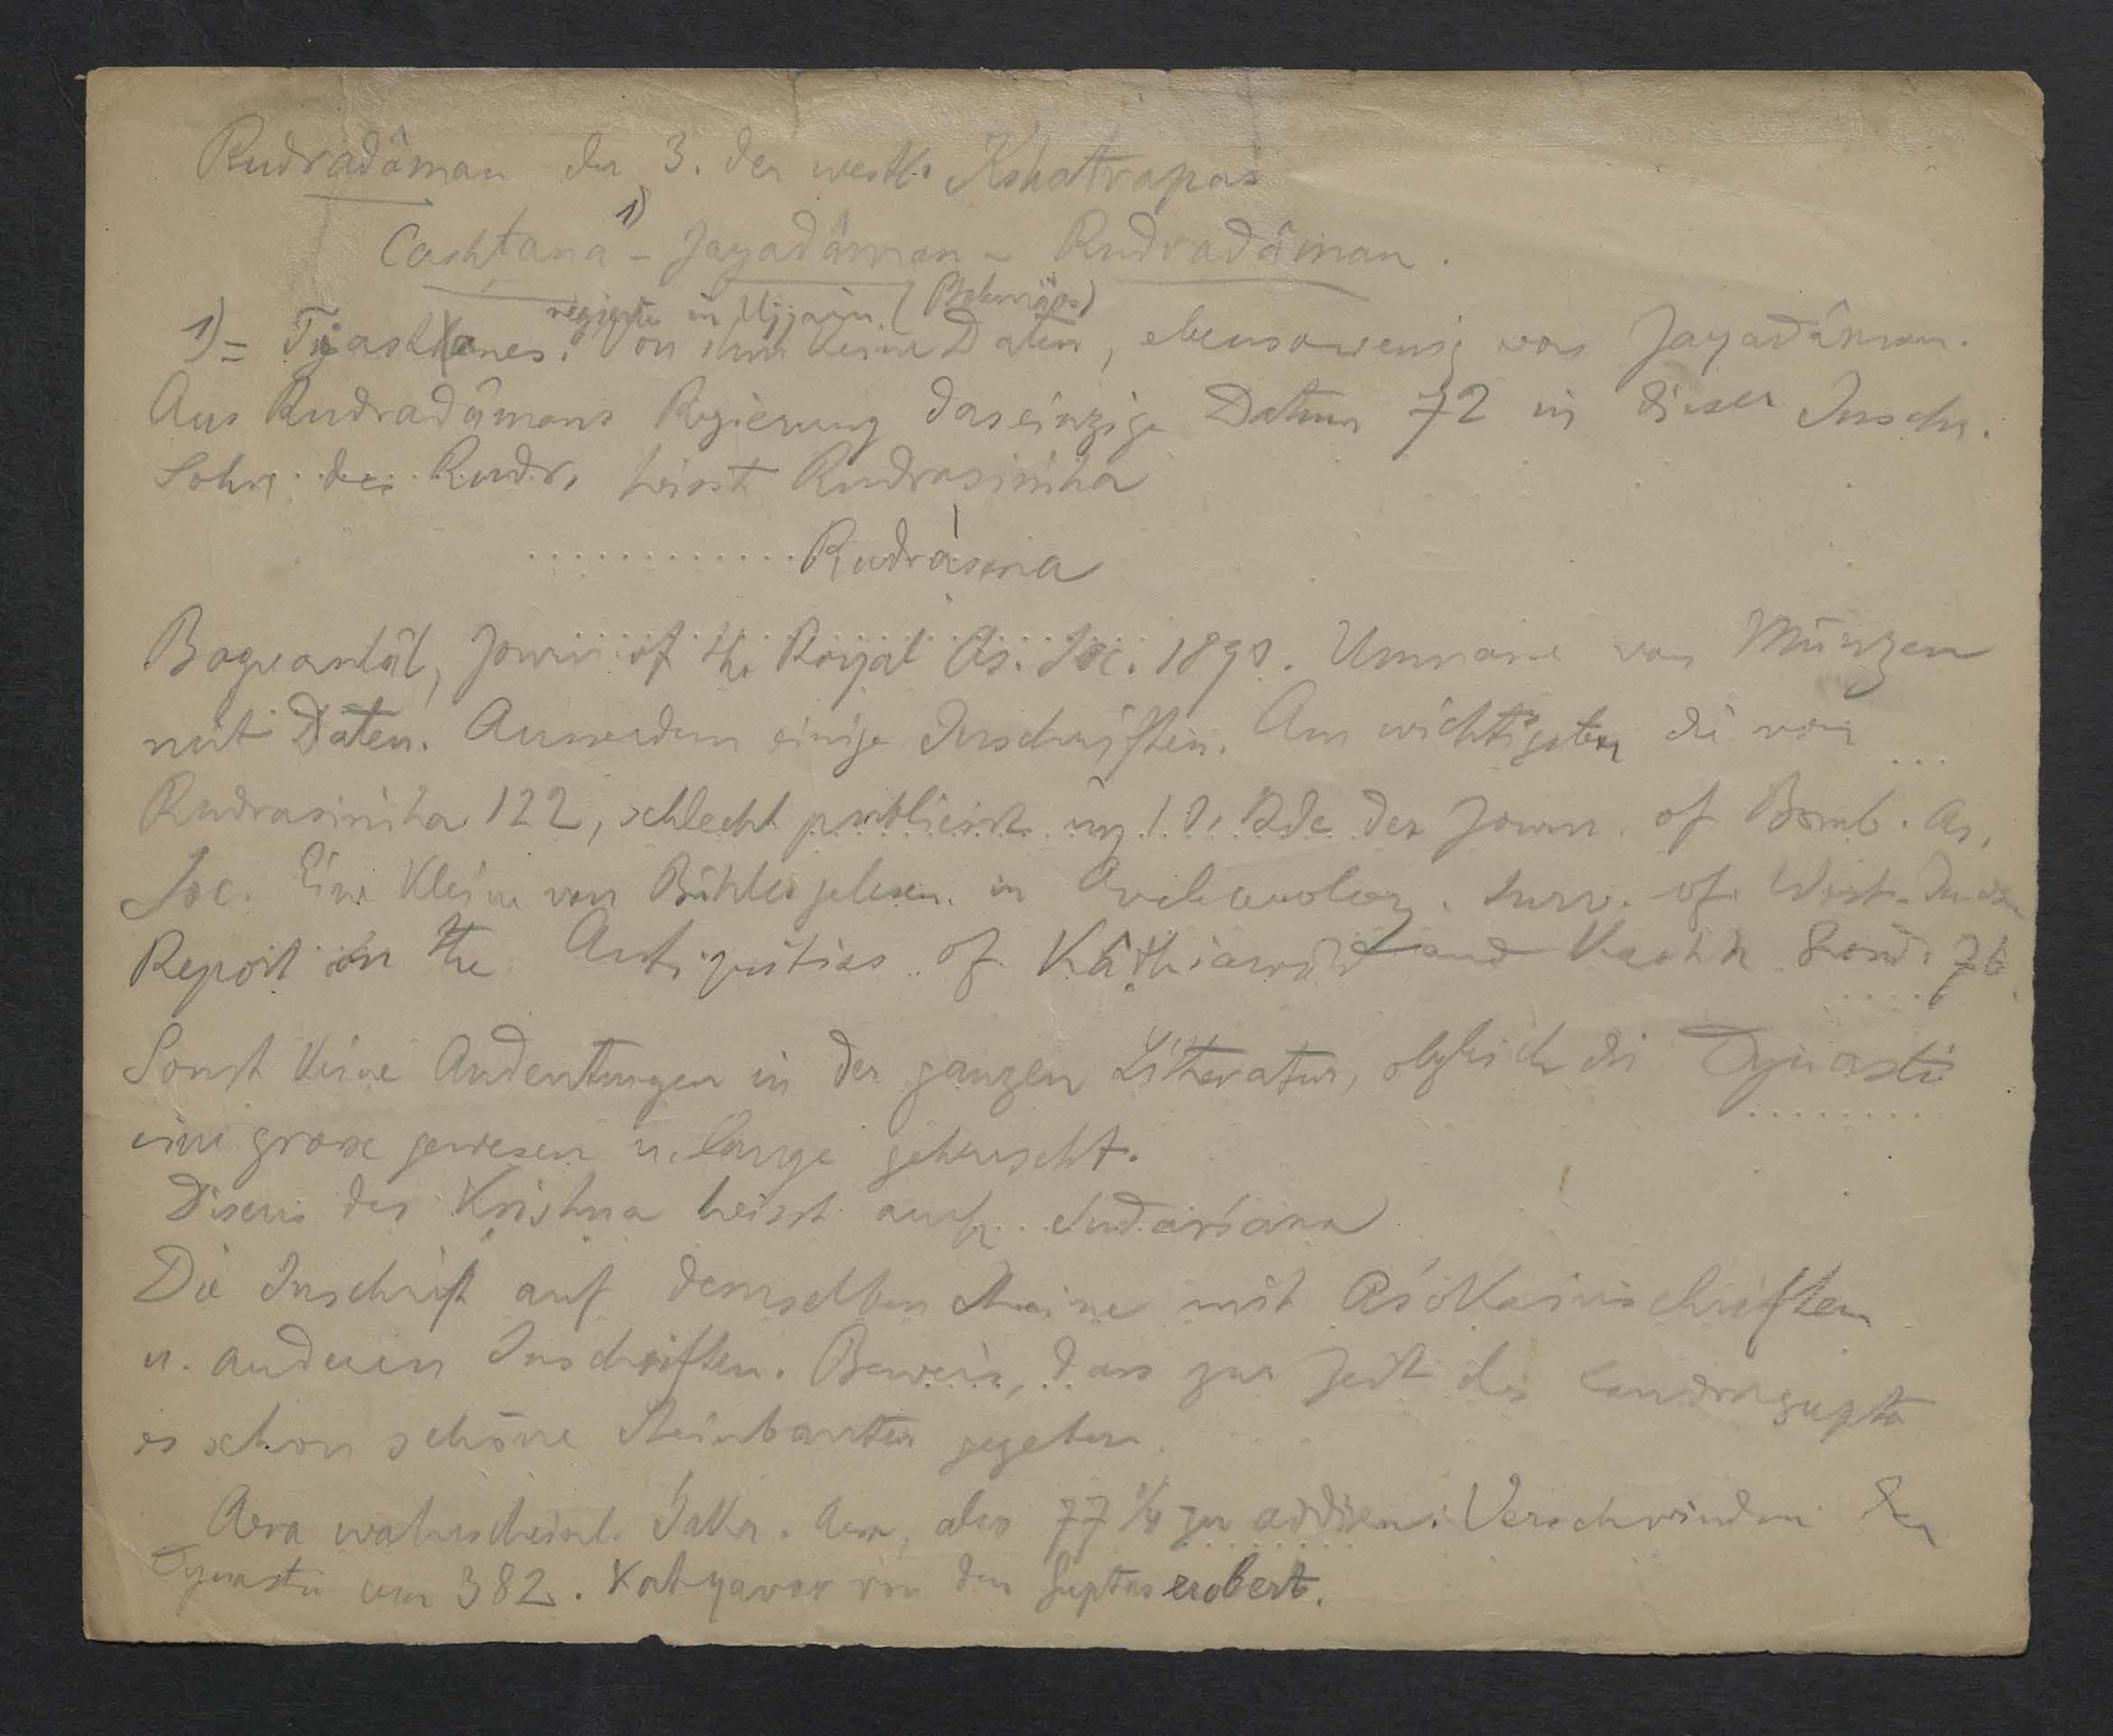 Rudradâman der 3. der westl. Kshatrapas
Cashtana 1) - Jayadâman - Rudradâman.
regierte in Ujjain (Ptolemäos)
1) = Tiastanes. Von ihm keine Daten, ebensowenig von Jayadâman.
Aus Rudradâmans Regierung das einzige Datum 72 in dieser Inschr.
Sohn des Rudr. heisst Rudrasiṁha
Rudrasena
Bagvanlâl, Journ of the Royal As. Soc. 1890. Unmasse von Münzen
mit Daten. Ausserdem einige Inschriften. Am wichtigsten die von
Rudrasiṁha 122, schlecht publicirt im Bde des Journ. of Bomb. As.
Soc. Eine kleine von Bühler gelesen in Archaeolog. Surv. of West. India
Report on the Antiquities of Kâṭhiawâḍ and Kachh Lond. 76
Sonst keine Andeutungen in der ganzen Litteratur, obgleich die Dynastie
eine grosse gewesen u. lange geherrscht.
Discus des Kṛishṇa heisst auch Sudarśana
Die Inschrift auf demselben Steine mit Aśokainschriften
u. anderen Inschriften. Beweis, dass zur Zeit des Candragupta
es schon schöne Steinbauten gegeben.
Aera wahrscheinl. Śaka. Aera, also 77 1/4 zu addiren. Verschwinden der
Dynastie um 382. Katyavar von den Guptas erobert.